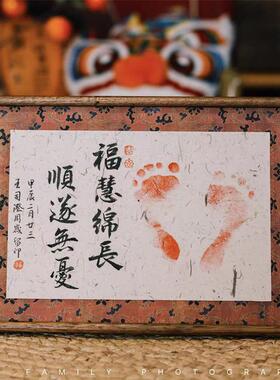 福慧綿長
順遂無憂
甲辰二月廿三
王司澄周歲留印
FAMILY PHOTOGRAP